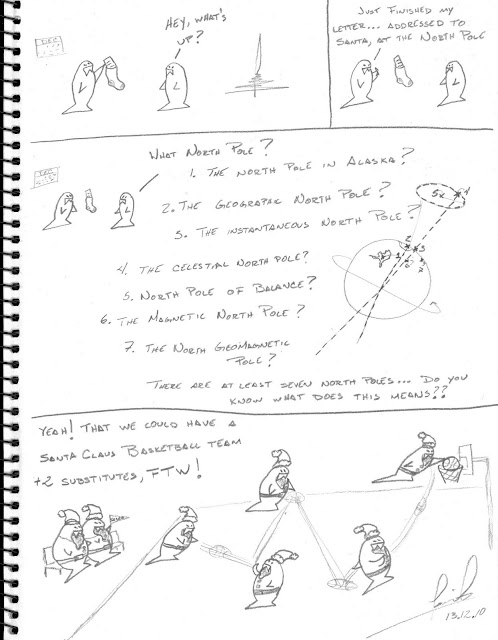 DEC
HEY, WHAT'S
UP?
JUST FINISHED MY
LETTER... ADDRESSED TO
SANTA, AT THE NORTH POLE
DEC
WHAT NORTH POLE?
1. THE NORTH POLE IN ALASKA?
2. THE GEOGRAPHIC NORTH POLE?
3. THE INSTANTANEOUS NORTH POLE?
4. THE CELESTIAL NORTH POLE?
5. NORTH POLE OF BALANCE?
6. THE MAGNETIC NORTH POLE?
7. THE NORTH GEOMAGNETIC
POLE?
5x
THERE ARE AT LEAST SEVEN NORTH POLES... DO YOU
KNOW WHAT DOES THIS MEANS??
YEAH! THAT WE COULD HAVE A
SANTA CLAUS BASKETBALL TEAM
+2 SUBSTITUTES, FTW!
13.12.10